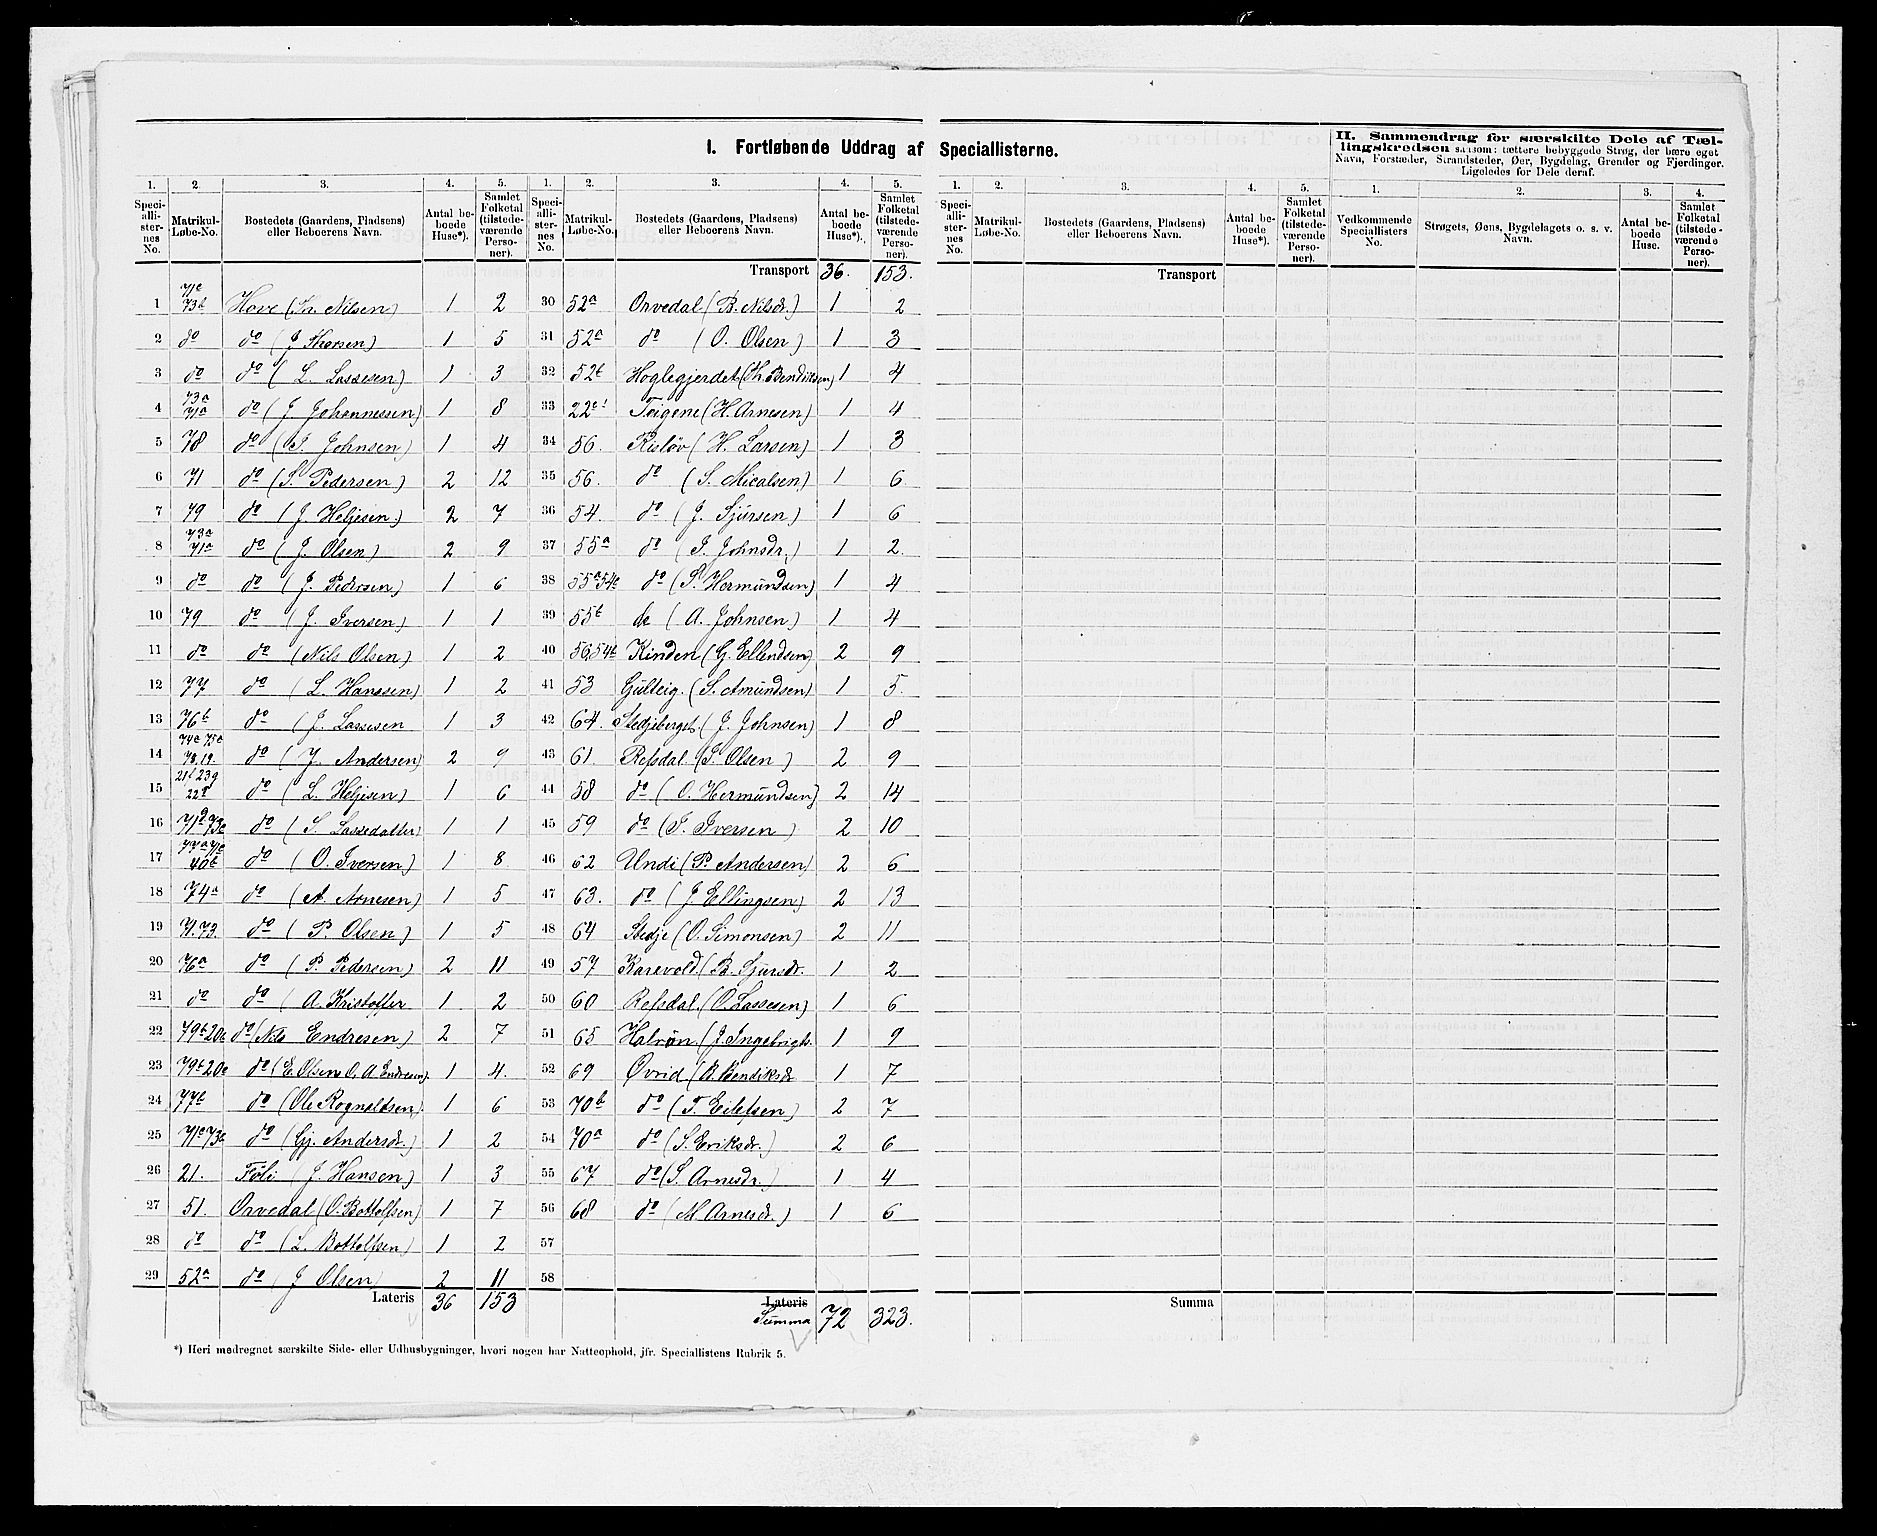 I. Fortløbende Uddrag af Speciallisterne.
II. Sammendrag for særskilte Dele af Tæl-
lingskredsen saasom: tættere bebyggede Strøg, der bære eget
Navn, Forstæder, Strandsteder, Øer, Bygdelag, Grender og Fjerdinger.
Ligeledes for Dele deraf.
1. 2. 3. 4. 5. 1. 2. 3. 4. 5. 1. 2. 3. 4. 5. 1. 2. 3. 4.
Speci-alli-ster-nes No. Matrikul-Løbe-No. Bostedets (Gaardens, Pladsens) eller Beboerens Navn. Antal be-boede Huse*). Samlet Folketal (tilstede-værende Perso-ner).
Speci-alli-ster-nes No. Matrikul-Løbe-No. Bostedets (Gaardens, Pladsens) eller Beboerens Navn. Antal be-boede Huse*). Samlet Folketal (tilstede-værende Perso-ner).
Speci-alli-ster-nes No. Matrikul-Løbe-No. Bostedets (Gaardens, Pladsens) eller Beboerens Navn. Antal be-boede Huse*). Samlet Folketal (tilstede-værende Perso-ner).
Vedkommende Speciallisters No. Strøgets, Øens, Bygdelagets o. s. v. Navn. Antal be-boede Huse. Samlet Folketal (tilstede-værende Perso-ner).
Transport 36. 153. Transport
1 71c 73b Hove (Nilsen) 1 2 30 52a Orvedal (B. Nilsdr.) 1 2
2 do do (J Thorsen) 1 5 31 52a do (O. Olsen) 1 3
3 do do (L. Lassesen) 1 3 32 52b Hoglegjerdet (Th. Bendiksen) 1 4
4 73a 71a do (J Johannessen) 1 8 33 22 Teigene (H. Arnesen) 1 4
5 78 do (I. Johnsen) 1 4 34 56. Risløv (H. Larsen) 1 3
6 71 do (S. Pedersen) 2 12 35 56. do (S. Micalsen) 1 6
7 79 do (J. Heljesen.) 2 7 36 54. do (J. Sjursen) 1 6
8 73a 71a do (J. Olsen) 2 9 37 55a do (I. Johnsdr.) 1 2.
9 do do (J. Pedersen) 1 6 38 55a 54a do (P. Hermundsen) 1 4
10 79 do (J. Iversen) 1 1 39 55b do (A. Johnsen) 1 4
11 do do (Nils Olsen) 1 2 40 56 54b Kinden (G. Ellendsen) 2 9
12 77 do (L. Hanssen) 1 2 41 53 Gulteig. (S. Amundsen) 1 5.
13 76b do (J. Lassesen 1 3 42 64. Stedjeberget. (J. Johnsen) 1 8
14 74c 75c 78.19. do (J. Andersen) 2 9 43 61. Refsdal. (I. Olsen) 2 9
15 21 23g 22 do (L. Heljesen) 1 6 44 58 do (O. Hermundsen) 2 14
16 71d 73c do (S. Lassedatter) 1 1 45 59 do (I. Iversen) 2 10
17 40b do (O. Iversen) 1 8 46 62 Undi (P. Andersen) 2 6
18 74a do (A. Arnesen) 1 5 47 63. do (J Ellingsen) 2 13
19 71.73. do (P. Olsen) 1 5 48 64 Stedje (O. Simonsen) 2 11
20 76a do (P. Pedersen) 2 11 49 57 Karevold. (B. Sjursdr. 1 2
21 do do (A. Kristoffer 1 2 50 60 Refsdal. (O. Lassesen) 1 6
22 79b 20b do (Nils Endresen) 2 7 51 65 Halrön. (J. Ingebrigts. 1 9
23 79b 20a do (E. Olsen O. A. Endresen) 1 4. 52 69 Øvrid (B. Bendiksdr 1 7
24 77b do (Ole Rognaldsen) 1 6 53 70b do (T. Eilefsen) 2 7
25 71e 73c do (Gj. Andersdr.) 1 2 54 70a do (S. Eriksdr.) 2 6
26 21. Föli (J. Hansen) 1 3 55 67 do (S. Arnesdr.) 1 4
27 51. Orvedal (O. Bottolfsen) 1 7 56 68 do (M Arnesdr.) 1 6
28 do do (L. Bottolfsen) 1 2 57
29 52a do (J Olsen) 2 11 58
Lateris 36 153 Lateris Summa 72 323. Summa
*) Heri medregnet særskilte Side- eller Udhusbygninger, hvori nogen har Natteophold, jfr. Speciallistens Rubrik 5.